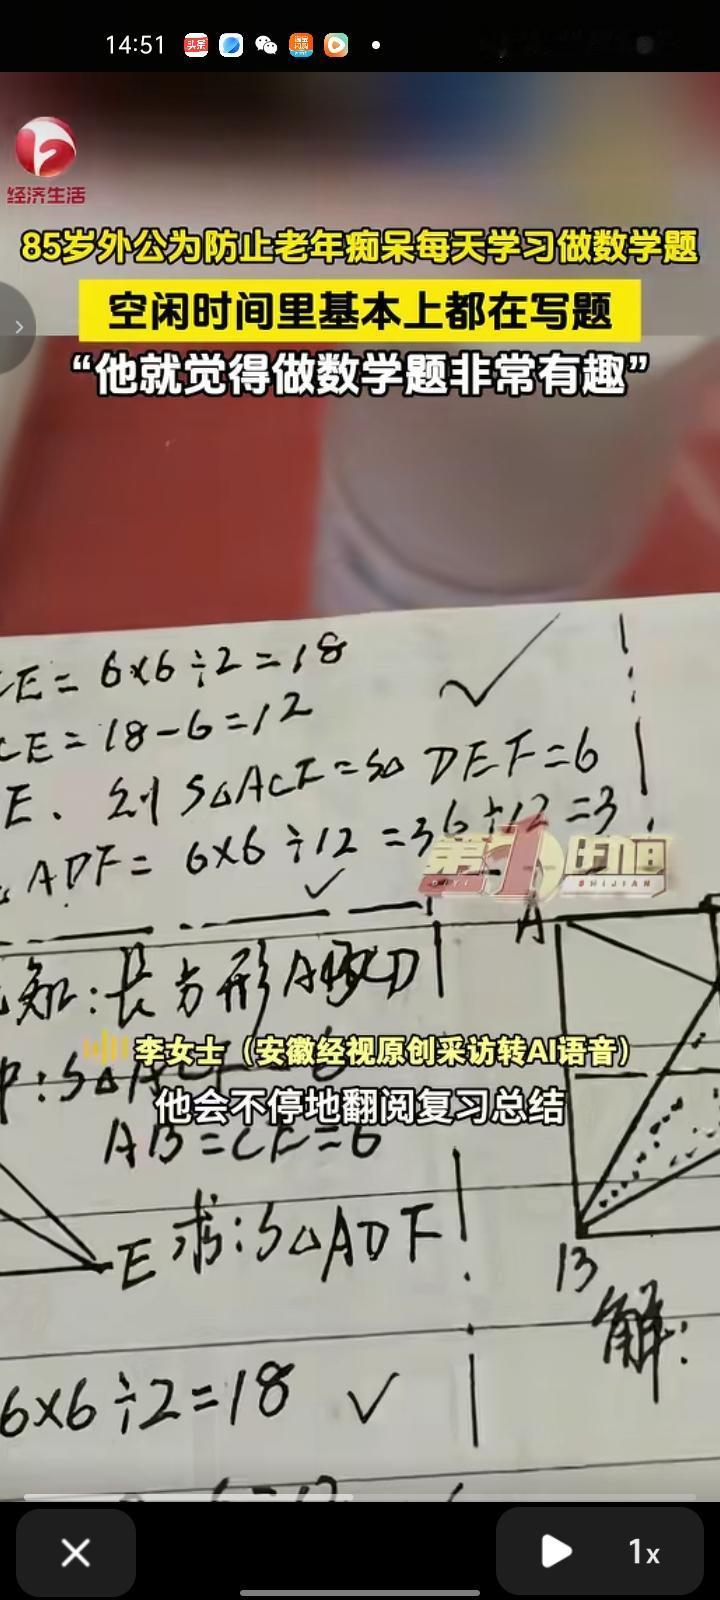 14:51
经济生活
85岁外公为防止老年痴呆每天学习做数学题
空闲时间里基本上都在写题
“他就觉得做数学题非常有趣”
CE=6×6÷2=18
CE=18-6=12
E、则S△ACF=S△DEF=6
ADF=6×6÷12=3 6÷12=3
第1时间
SHIJIAN
A
知:长方形ABCD
李女士（安徽经视原创采访转AI语音）
他会不停地翻阅复习总结
AB=CE=6
E 求:S△ADF
B
解:
6×6÷2=18
1x